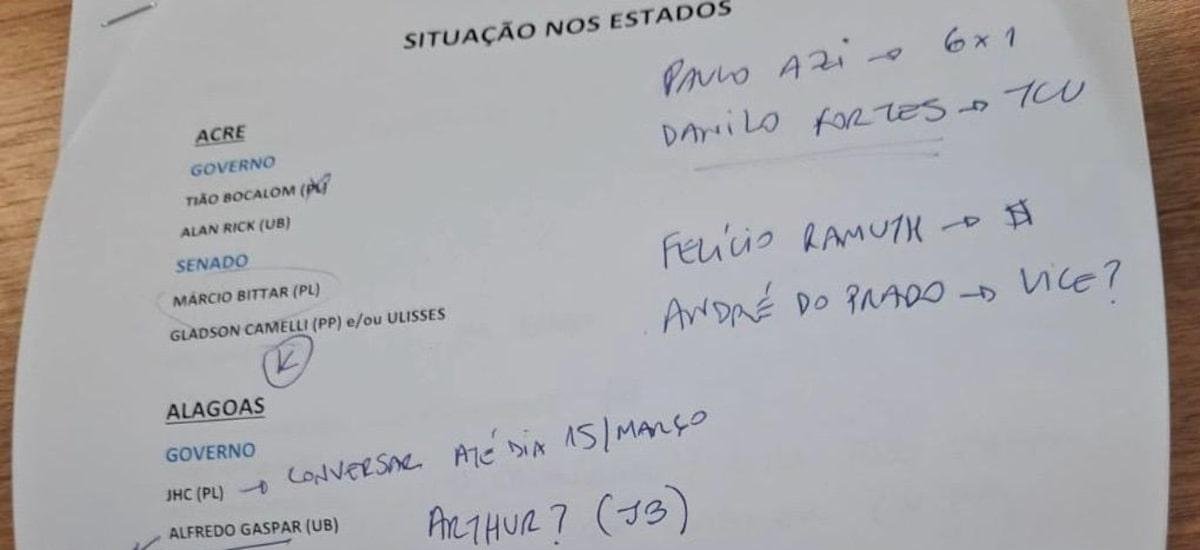 SITUAÇÃO NOS ESTADOS
PAULO AZI → 6x1
DANILO FORTES → TCU
ACRE
GOVERNO
TIÃO BOCALOM (PL)
ALAN RICK (UB)
SENADO
MÁRCIO BITTAR (PL)
GLADSON CAMELLI (PP) e/ou ULISSES
K
FELÍCIO RAMUTH → $
ANDRÉ DO PRADO → VICE?
ALAGOAS
GOVERNO
JHC (PL) → CONVERSAR ATÉ DIA 15/MARÇO
ALFREDO GASPAR (UB)
ARTHUR? (JB)